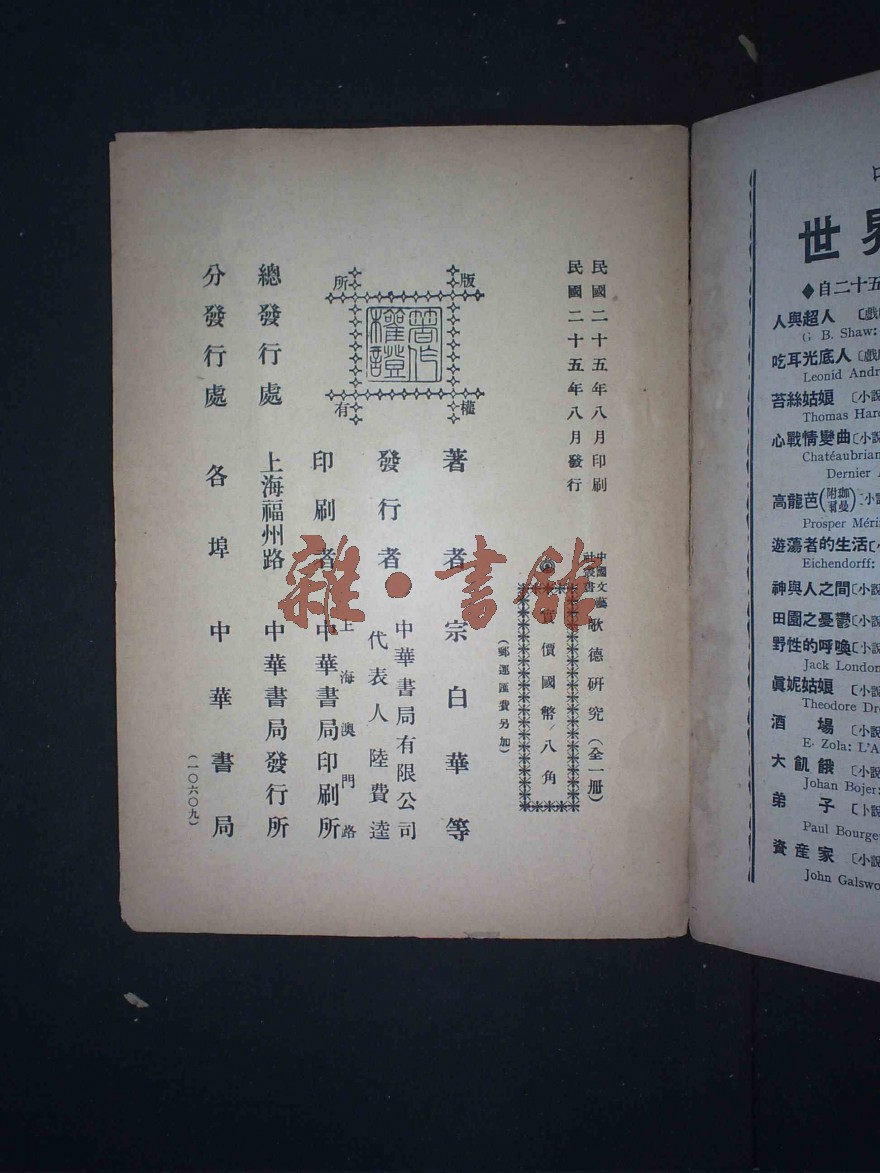 民國二十五年八月印刷
民國二十五年八月發行
中國文藝社叢書
歌德研究（全一册）
實價國幣八角
（郵運匯費另加）
版權所有
著作權證
著者 宗白華等
發行者 中華書局有限公司
代表人 陸費逵
印刷者 上海澳門路
中華書局印刷所
總發行處 上海福州路 中華書局發行所
分發行處 各埠 中華書局
（一〇六〇九）
雜·書館
世界
◆自二十五
人與超人 〔戲
G. B. Shaw:
吃耳光底人〔戲
Leonid Andr
苔絲姑娘 〔小說
Thomas Hard
心戰情變曲〔小說
Chatéaubrian
Dernier
高龍芭（附珈爾曼）〔小說
Prosper Méri
遊蕩者的生活〔
Eichendorff:
神與人之間〔小說
田園之憂鬱〔小說
野性的呼喚〔小說
Jack London
眞妮姑娘 〔小說
Theodore Dre
酒場 〔小說
E. Zola: L'A
大飢餓 〔小說
Johan Bojer:
弟子 〔小說
Paul Bourge
資産家 〔小說
John Galswo